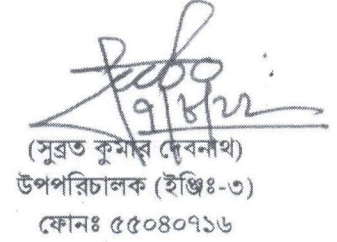 ৭/৮/২২
(সুব্রত কুমার দেবনাথ)
উপপরিচালক (ইঞ্জিঃ-৩)
ফোনঃ ৫৫০৪০৭১৬